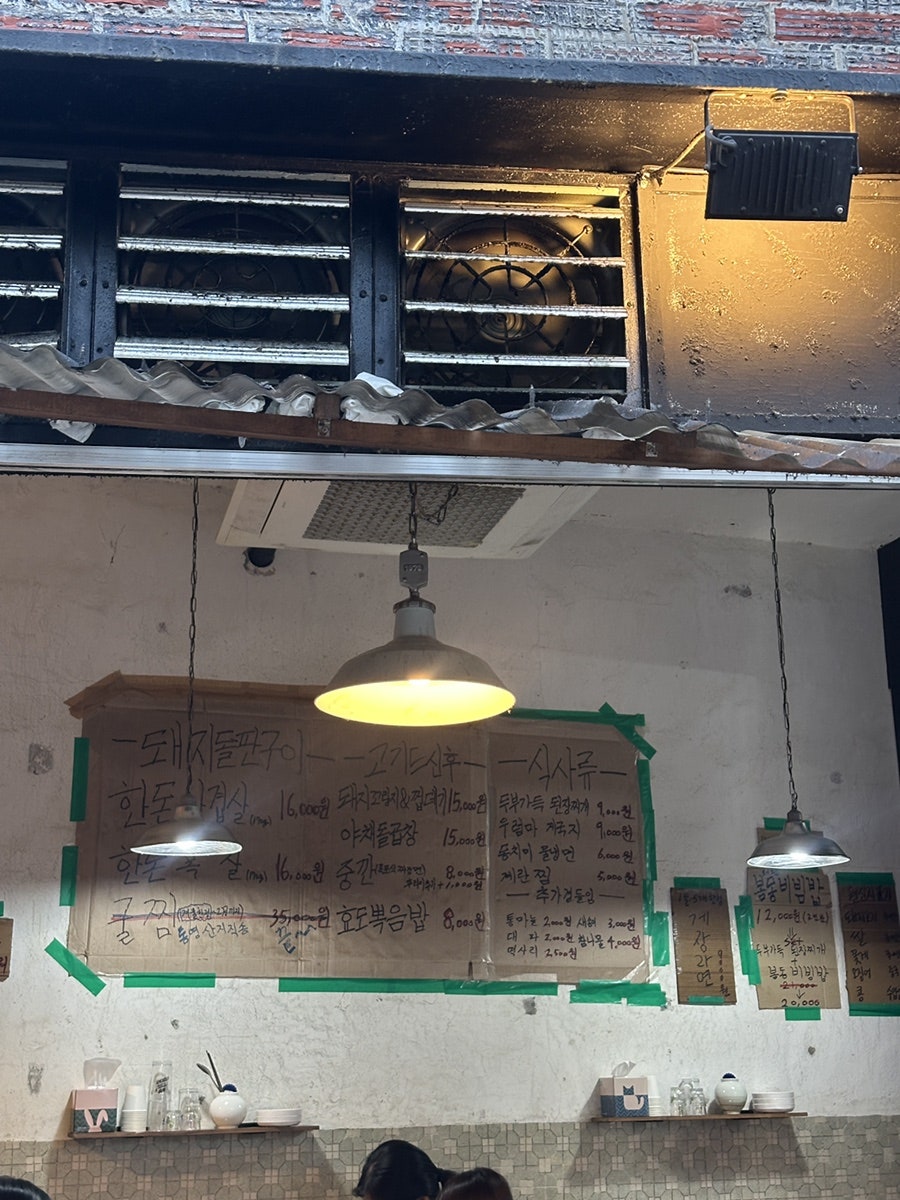 -돼지돌판구이-
한돈 겹살 16,000원
한돈목살 16,000원
굴찜 35,000원
통영산지직송 끝~
-고기드신후-
15,000원
야채돌곱창 15,000원
중깐 8,000원
효도볶음밥 8,000원
-식사류-
두부가득 된장찌개 9,000원
우렁마 게국지 9,000원
동치미 물냉면 6,000원
계란찜 5,000원
-추가곁들임-
통마늘 2,000원 새해 3,000원
대파 2,000원 참나물 4,000원
떡사리 2,500원
게장라면 9000원
봄동비빔밥
12,000원
SET
두부가득 된장찌개
+
봄동비빔밥
21,000
↓
20,000
쌀
꽃게
콩